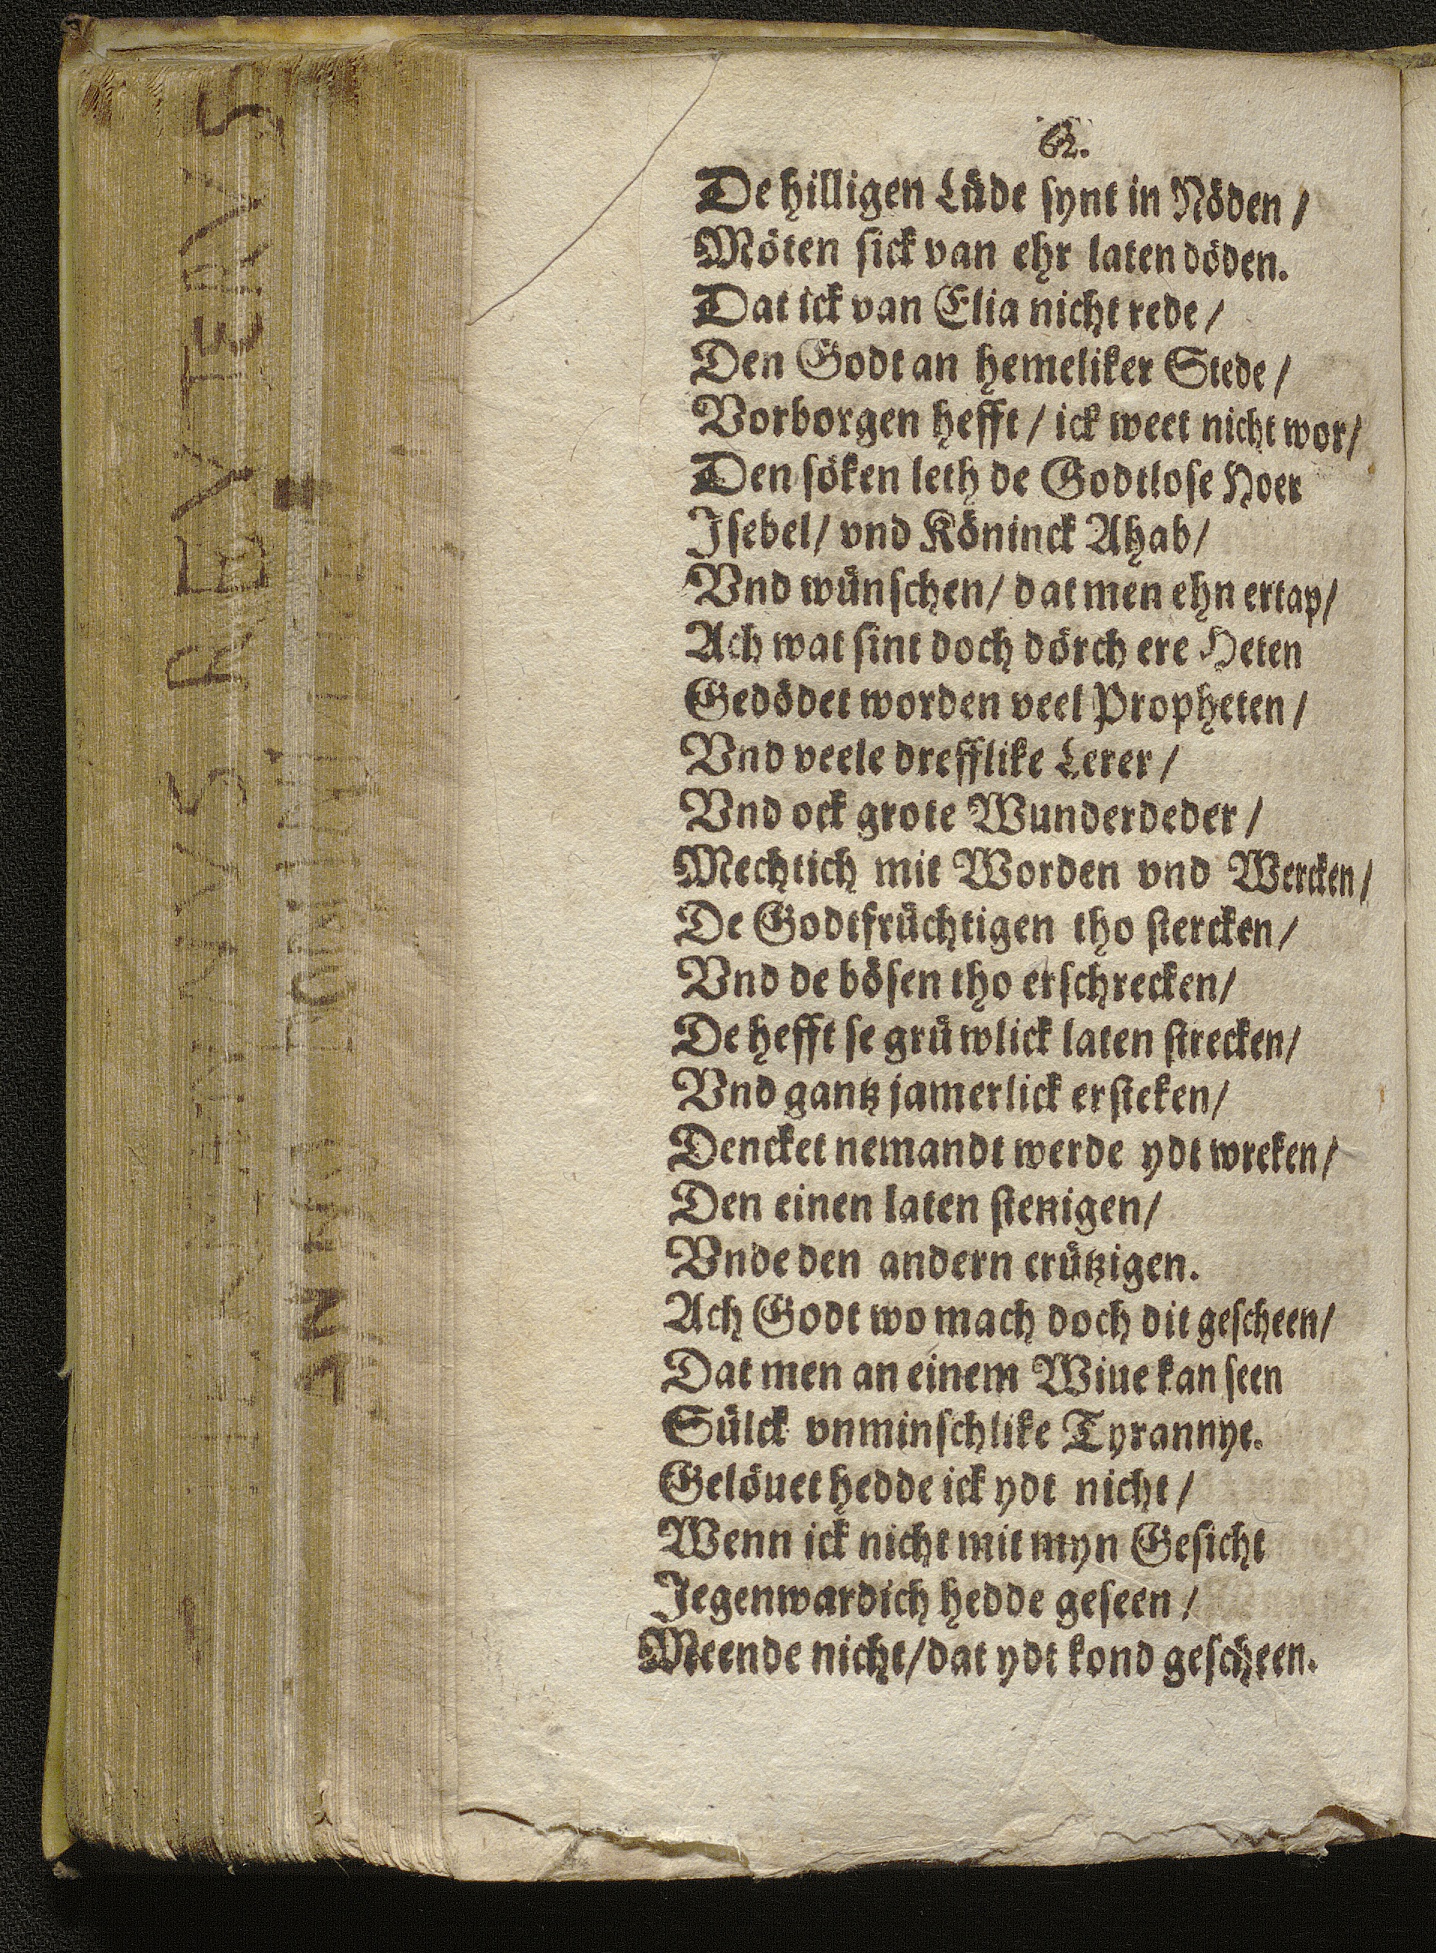 62.
De hilligen Lüde synt in Nöden /
Möten sick van ehr laten döden.
Dat ick van Elia nicht rede /
Den Godt an hemeliker Stede /
Vorborgen hefft / ick weet nicht wor /
Den söken leth de Godtlose Hoer
Jsebel / vnd Köninck Ahab /
Vnd wünschen / dat men ehn ertap /
Ach wat sint doch dörch ere Heten
Gedödet worden veel Propheten /
Vnd veele drefflike Lerer /
Vnd ock grote Wunderdeder /
Mechtich mit Worden vnd Wercken /
De Godtfrüchtigen tho stercken /
Vnd de bösen tho erschrecken /
De hefft se grüwlick laten strecken /
Vnd gantz jamerlick ersteken /
Dencket nemandt werde ydt wreken /
Den einen laten stenigen /
Vnde den andern crützigen.
Ach Godt wo mach doch dit gescheen /
Dat men an einem Wiue kan seen
Sülck vnminschlike Tyrannye.
Gelöuet hedde ick ydt nicht /
Wenn ick nicht mit myn Gesicht
Jegenwardich hedde geseen /
Meende nicht / dat ydt kond gescheen.
REVTERVS